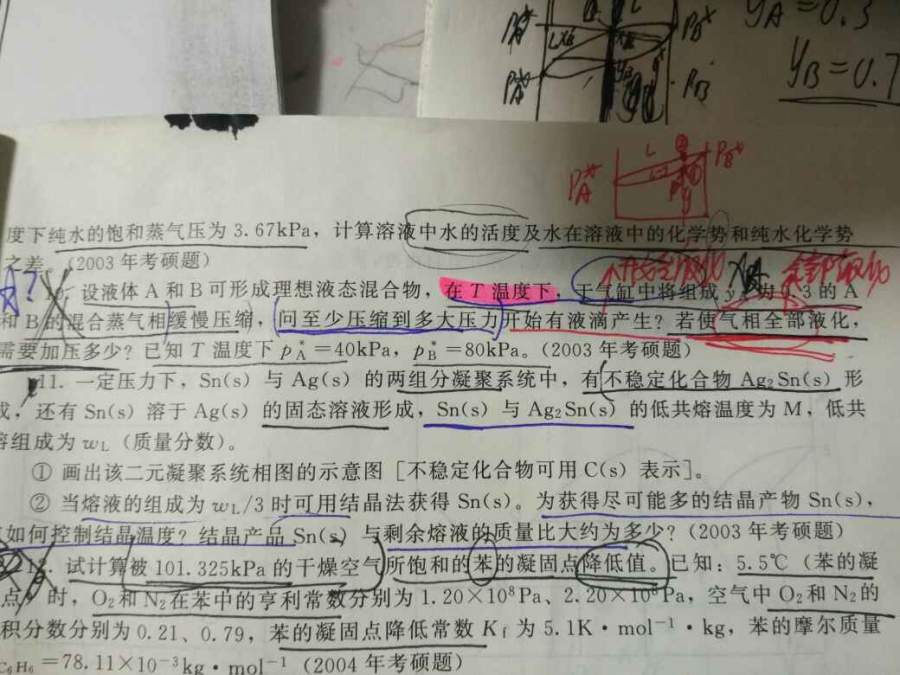 y_A=0.3
P_B^*
y_B=0.7
P_A^*
P_B
L
P_A^*
P_B^*
度下纯水的饱和蒸气压为 3.67kPa，计算溶液中水的活度及水在溶液中的化学势和纯水化学势
之差。(2003 年考硕题)
开始液化
全部液化
设液体 A 和 B 可形成理想液态混合物，在 T 温度下，于气缸中将组成 0.3 的 A
和 B 的混合蒸气相缓慢压缩，问至少压缩到多大压力开始有液滴产生？若使气相全部液化，
需要加压多少？已知 T 温度下 p_A^*=40kPa，p_B^*=80kPa。(2003 年考硕题)
11. 一定压力下，Sn(s) 与 Ag(s) 的两组分凝聚系统中，有不稳定化合物 Ag₂Sn(s) 形
成，还有 Sn(s) 溶于 Ag(s) 的固态溶液形成，Sn(s) 与 Ag₂Sn(s) 的低共熔温度为 M，低共
溶组成为 w_L (质量分数)。
① 画出该二元凝聚系统相图的示意图 [不稳定化合物可用 C(s) 表示]。
② 当熔液的组成为 w_L/3 时可用结晶法获得 Sn(s)。为获得尽可能多的结晶产物 Sn(s)，
如何控制结晶温度？结晶产品 Sn(s) 与剩余熔液的质量比大约为多少？(2003 年考硕题)
试计算被 101.325kPa 的干燥空气所饱和的苯的凝固点降低值。已知：5.5℃ (苯的凝
点) 时，O₂和 N₂在苯中的亨利常数分别为 1.20×10⁸Pa、2.20×10⁸Pa，空气中 O₂和 N₂的
积分数分别为 0.21、0.79，苯的凝固点降低常数 K_f 为 5.1K·mol⁻¹·kg，苯的摩尔质量
C₆H₆=78.11×10⁻³kg·mol⁻¹ (2004 年考硕题)